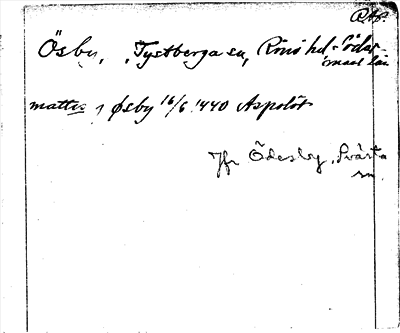 RAp.
Ösby, Tystberga sn, Rönö hd, Söder-
manl. län
mattis j Øsby 16/6 1440 Aspolöt
Jfr Ödesby, Svärta
sn.